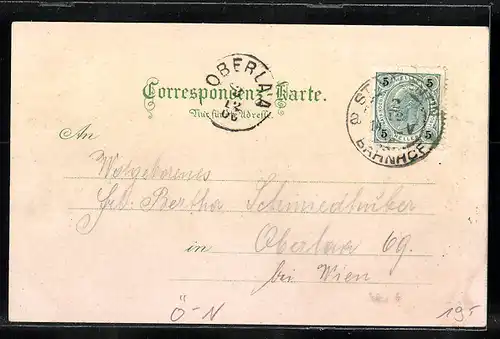 OBERLAA
5 5
ST.
5 5
BAHNHOF
Correspondenz-Karte.
Nur für die Adresse.
An
Wolgeborenes
Frl. Bertha Schmiedhuber
in Oberlaa 69.
bei Wien
Ö-N
19,-